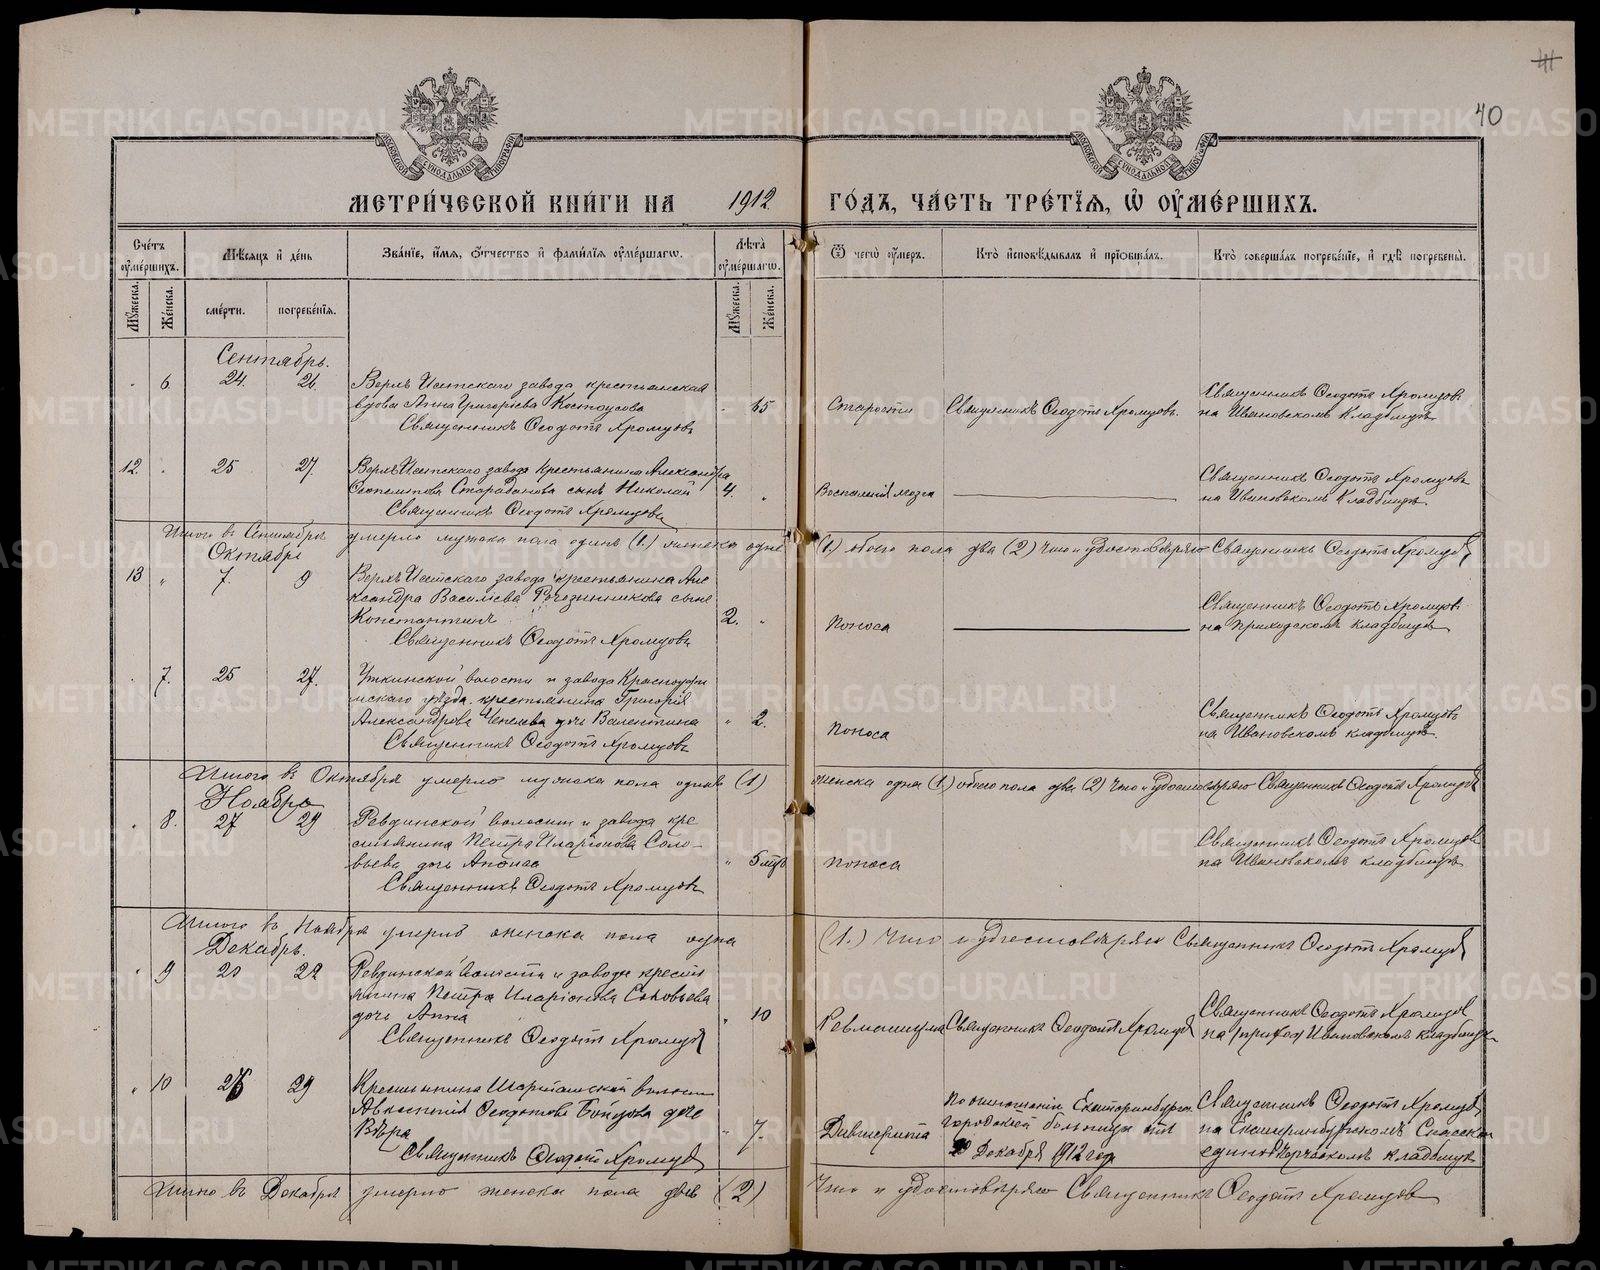 40
МЕТРИ́ЧЕСКОЙ КНИ́ГИ НА 1912 ГО́ДЪ, ЧА́СТЬ ТРЕ́ТІѦ, Ѡ ОУМЕ́РШИХЪ.
МОСКОВСКОЙ СѴНОДАЛЬНОЙ ТИПОГРАФІИ
МОСКОВСКОЙ СѴНОДАЛЬНОЙ ТИПОГРАФІИ
Сче́тъ оуме́ршихъ.
Мѣ́сяцъ и де́нь
Зва́ніе, и́мя, о́тчество и фами́лія оуме́ршагѡ.
Лѣ́та оуме́ршагѡ.
Ѿ чегѡ̀ оу́меръ.
Кто̀ исповѣ́дывалъ и пріѡбща́лъ.
Кто̀ соверша́лъ погребе́ніе, и гдѣ̀ погребены̀.
Му́жеска.
Же́нска.
сме́рти.
погребе́нія.
Му́жеска.
Же́нска.
Сентябрь.
6. 24. 26.
Верхъ Исетскаго завода крестьянская
вдова Анна Григорьева Костоусова
Священникъ Ѳеодотъ Хромцовъ
65
Старости
Священникъ Ѳеодотъ Хромцовъ.
Священникъ Ѳеодотъ Хромцовъ
на Ивановскомъ кладбищѣ.
12. 25 27.
Верхъ Исетскаго завода крестьянина Александра
сынъ Николай
Священникъ Ѳеодотъ Хромцовъ
4.
Воспаленія мозга
Священникъ Ѳеодотъ Хромцовъ
на Ивановскомъ кладбищѣ.
Итого въ Сентябрѣ умерло мужска пола одинъ (1.) женска одна (1.) обоего пола два (2) Что и удостовѣряю Священникъ Ѳеодотъ Хромцовъ
Октябрь
13 " 7. 9
Верхъ Исетскаго завода крестьянина Але
ксандра Васильева сынъ
Константинъ
Священникъ Ѳеодотъ Хромцовъ
2. "
Поноса
Священникъ Ѳеодотъ Хромцовъ
на приходскомъ кладбищѣ
7. 25 27.
Уткинской волости и завода Красноуфи
мскаго уѣзда крестьянина Григорія
Александрова дочь Валентина
Священникъ Ѳеодотъ Хромцовъ
" 2.
Поноса
Священникъ Ѳеодотъ Хромцовъ
на Ивановскомъ кладбищѣ.
Итого въ Октябрѣ умерло мужска пола одинъ (1) женска одна (1) обоего пола два (2) Что и удостовѣряю Священникъ Ѳеодотъ Хромцовъ
Ноябрь
8. 27 29
Ревдинской волости и завода кре
стьянина Петра Иларіонова Соло-
вьева дочь
Священникъ Ѳеодотъ Хромцовъ
" 5 мѣс
Поноса
Священникъ Ѳеодотъ Хромцовъ
на Ивановскомъ кладбищѣ
Итого въ Ноябрѣ умерло женска пола одна (1.) Что и удостовѣряю Священникъ Ѳеодотъ Хромцовъ
Декабрь.
" 9 22
Ревдинской волости и завода кресть
янина Петра Иларіонова Соловьева
дочь Анна
Священникъ Ѳеодотъ Хромцовъ
" 10
Ревматизма
Священникъ Ѳеодотъ Хромцовъ
Священникъ Ѳеодотъ Хромцовъ
на Ивановскомъ кладбищѣ
" 10 26 29
Крестьянина Шарташской волости
Ѳеодотова дочь
Вѣра
Священникъ Ѳеодотъ Хромцовъ
" 7.
Дифтерита
По отношенію Екатеринбург.
городской больницы отъ
Декабря 1912 год
Священникъ Ѳеодотъ Хромцовъ
на Екатеринбургскомъ Спасском
единовѣрческомъ кладбищѣ
Итого въ Декабрѣ умерло женска пола двѣ (2) Что и удостовѣряю Священникъ Ѳеодотъ Хромцовъ
METRIKI.GASO-URAL.RU